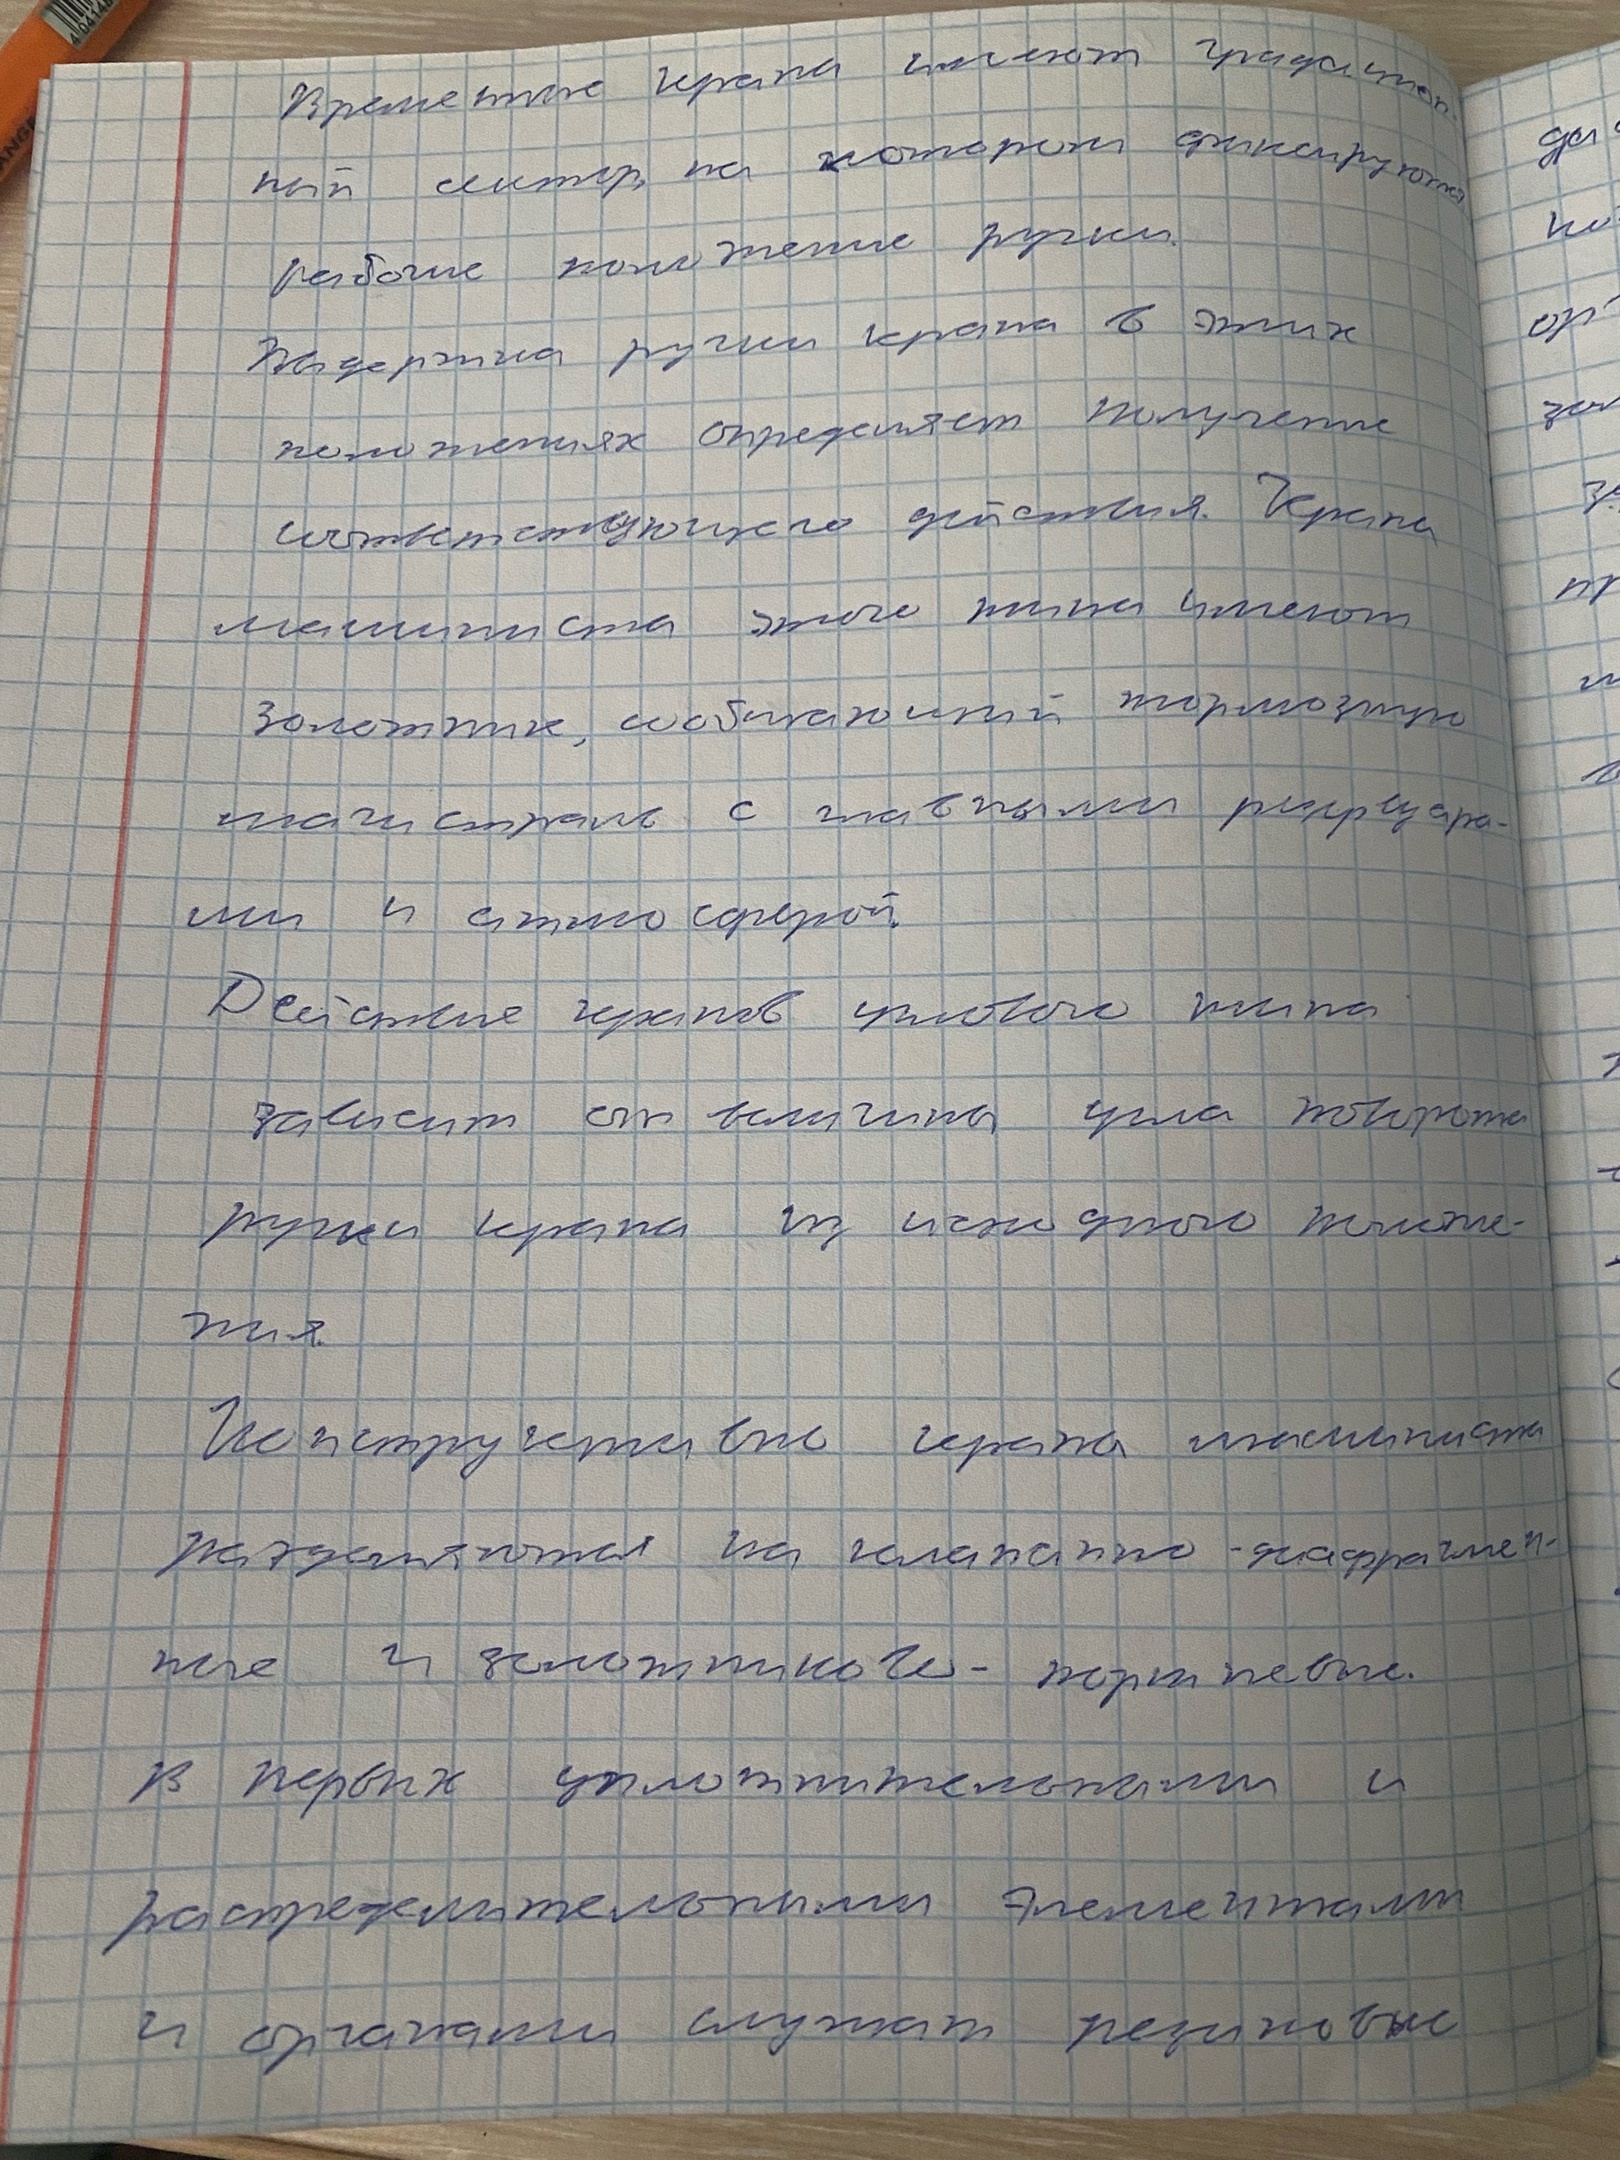 Временные крана имеют градацион-
ный сектор, на котором фиксируются
рабочие положение ручки.
Выдержка ручки крана в этих
положениях определяет получение
соответствующего действия. Крана
машиниста этого типа имеют
золотник, сообщающий тормозную
магистраль с главными резервуара-
ми и атмосферой.
Действие кранов углового типа
зависит от величины угла поворота
ручки крана из исходного положе-
ния.
Конструктивно крана машиниста
разделяются на клапанно-диафрагмен-
ные и золотниково-поршневые.
В первых уплотнительными и
распределительными элементами
и органами служат резиновые